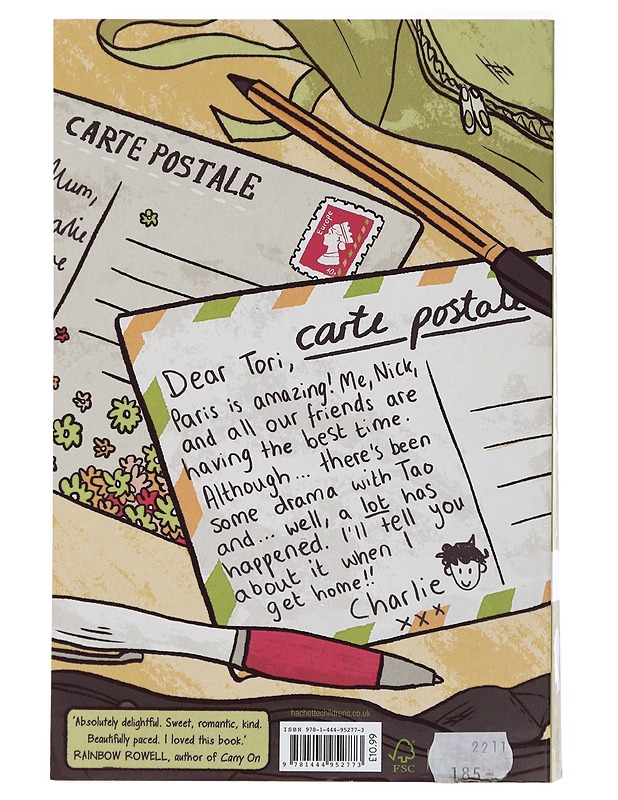 CARTE POSTALE
Mum,
Europe
carte postale
Dear Tori,
Paris is amazing! Me, Nick,
and all our friends are
having the best time.
Although... there's been
some drama with Tao
and... well, a lot has
happened. I'll tell you
about it when I
get home!!
Charlie
xxx
hachettechildrens.co.uk
'Absolutely delightful. Sweet, romantic, kind.
Beautifully paced. I loved this book.'
RAINBOW ROWELL, author of Carry On
ISBN 978-1-444-95277-3
9 781444 952773
£10.99
FSC
2211
185-